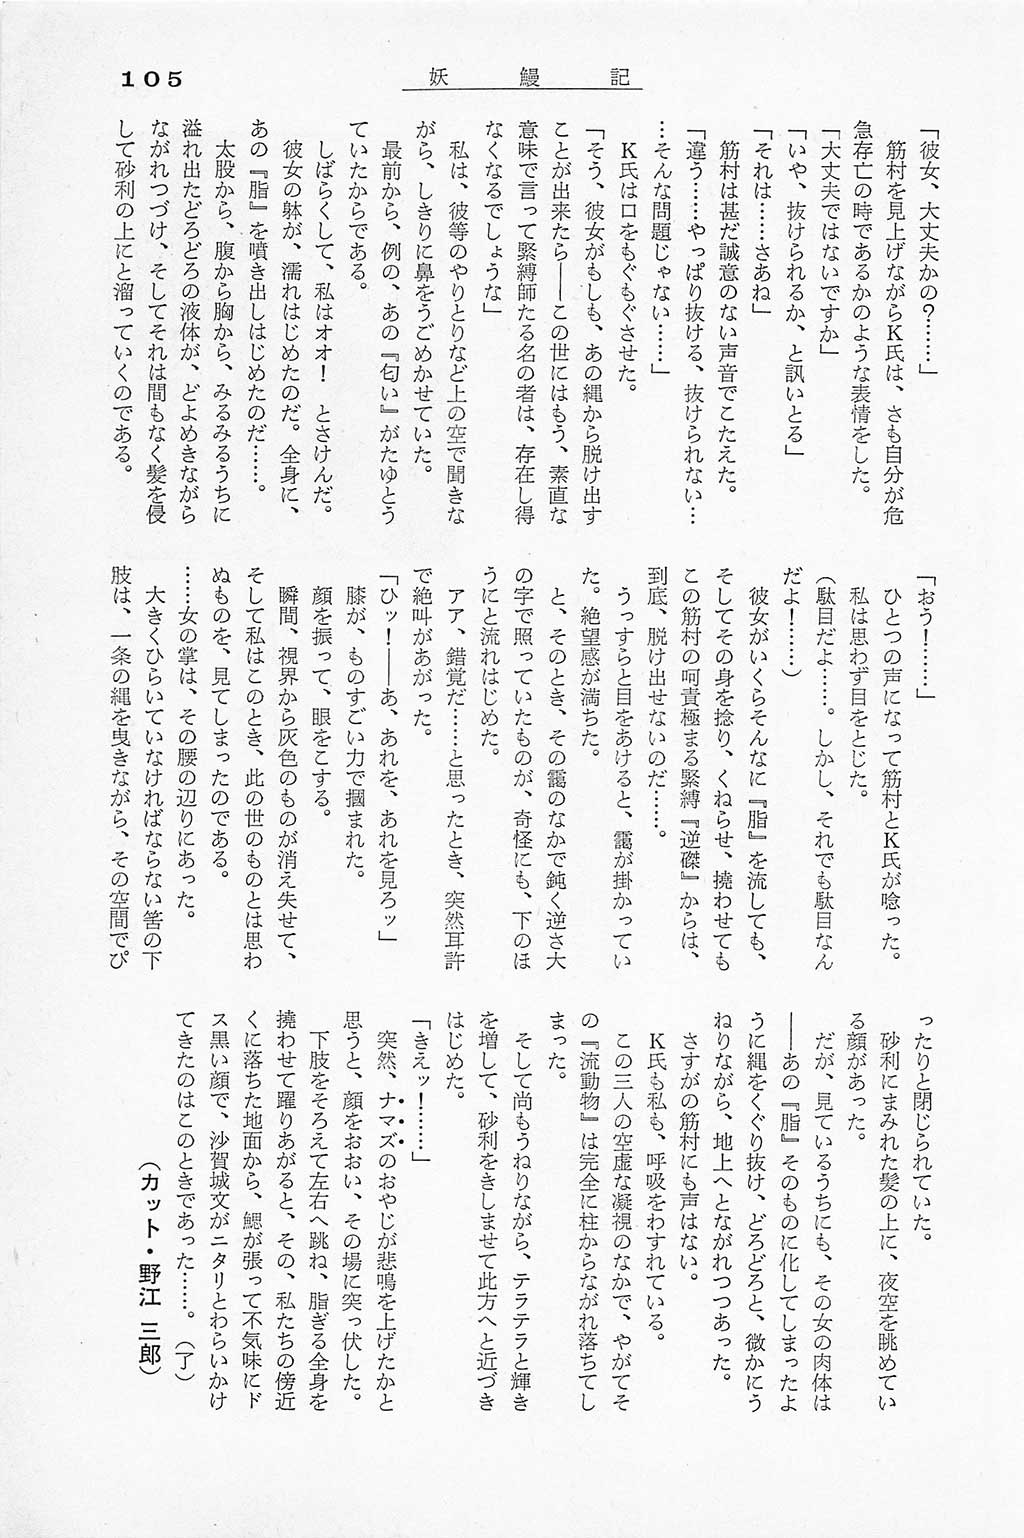 105
妖鰻記
「彼女、大丈夫かの？……」
　筋村を見上げながらK氏は、さも自分が危
急存亡の時であるかのような表情をした。
「大丈夫ではないですか」
「いや、抜けられるか、と訊いとる」
「それは……さあね」
　筋村は甚だ誠意のない声音でこたえた。
「違う……やっぱり抜ける、抜けられない…
…そんな問題じゃない……」
　K氏は口をもぐもぐさせた。
「そう、彼女がもしも、あの縄から脱け出す
ことが出来たら――この世にはもう、素直な
意味で言って緊縛師たる名の者は、存在し得
なくなるでしょうな」
　私は、彼等のやりとりなど上の空で聞きな
がら、しきりに鼻をうごめかせていた。
　最前から、例の、あの『匂い』がたゆとう
ていたからである。
　しばらくして、私はオオ！　とさけんだ。
　彼女の躰が、濡れはじめたのだ。全身に、
あの『脂』を噴き出しはじめたのだ……。
　太股から、腹から胸から、みるみるうちに
溢れ出たどろどろの液体が、どよめきながら
ながれつづけ、そしてそれは間もなく髪を侵
して砂利の上にと溜っていくのである。
「おう！……」
　ひとつの声になって筋村とK氏が唸った。
　私は思わず目をとじた。
（駄目だよ……。しかし、それでも駄目なん
だよ！……）
　彼女がいくらそんなに『脂』を流しても、
そしてその身を捻り、くねらせ、撓わせても
この筋村の呵責極まる緊縛『逆磔』からは、
到底、脱け出せないのだ……。
　うっすらと目をあけると、靄が掛かってい
た。絶望感が満ちた。
　と、そのとき、その靄のなかで鈍く逆さ大
の字で照っていたものが、奇怪にも、下のほ
うにと流れはじめた。
　アア、錯覚だ……と思ったとき、突然耳許
で絶叫があがった。
「ひッ！――あ、あれを、あれを見ろッ」
　膝が、ものすごい力で摑まれた。
　顔を振って、眼をこする。
　瞬間、視界から灰色のものが消え失せて、
そして私はこのとき、此の世のものとは思わ
ぬものを、見てしまったのである。
……女の掌は、その腰の辺りにあった。
　大きくひらいていなければならない筈の下
肢は、一条の縄を曳きながら、その空間でぴ
ったりと閉じられていた。
　砂利にまみれた髪の上に、夜空を眺めてい
る顔があった。
　だが、見ているうちにも、その女の肉体は
――あの『脂』そのものに化してしまったよ
うに縄をくぐり抜け、どろどろと、微かにう
ねりながら、地上へとながれつつあった。
　さすがの筋村にも声はない。
　K氏も私も、呼吸をわすれている。
　この三人の空虚な凝視のなかで、やがてそ
の『流動物』は完全に柱からながれ落ちてし
まった。
　そして尚もうねりながら、テラテラと輝き
を増して、砂利をきしませて此方へと近づき
はじめた。
「きえッ！……」
　突然、ナマズのおやじが悲鳴を上げたかと
思うと、顔をおおい、その場に突っ伏した。
　下肢をそろえて左右へ跳ね、脂ぎる全身を
撓わせて躍りあがると、その、私たちの傍近
くに落ちた地面から、鰓が張って不気味にド
ス黒い顔で、沙賀城文がニタリとわらいかけ
てきたのはこのときであった……。（了）
（カット・野江 三郎）